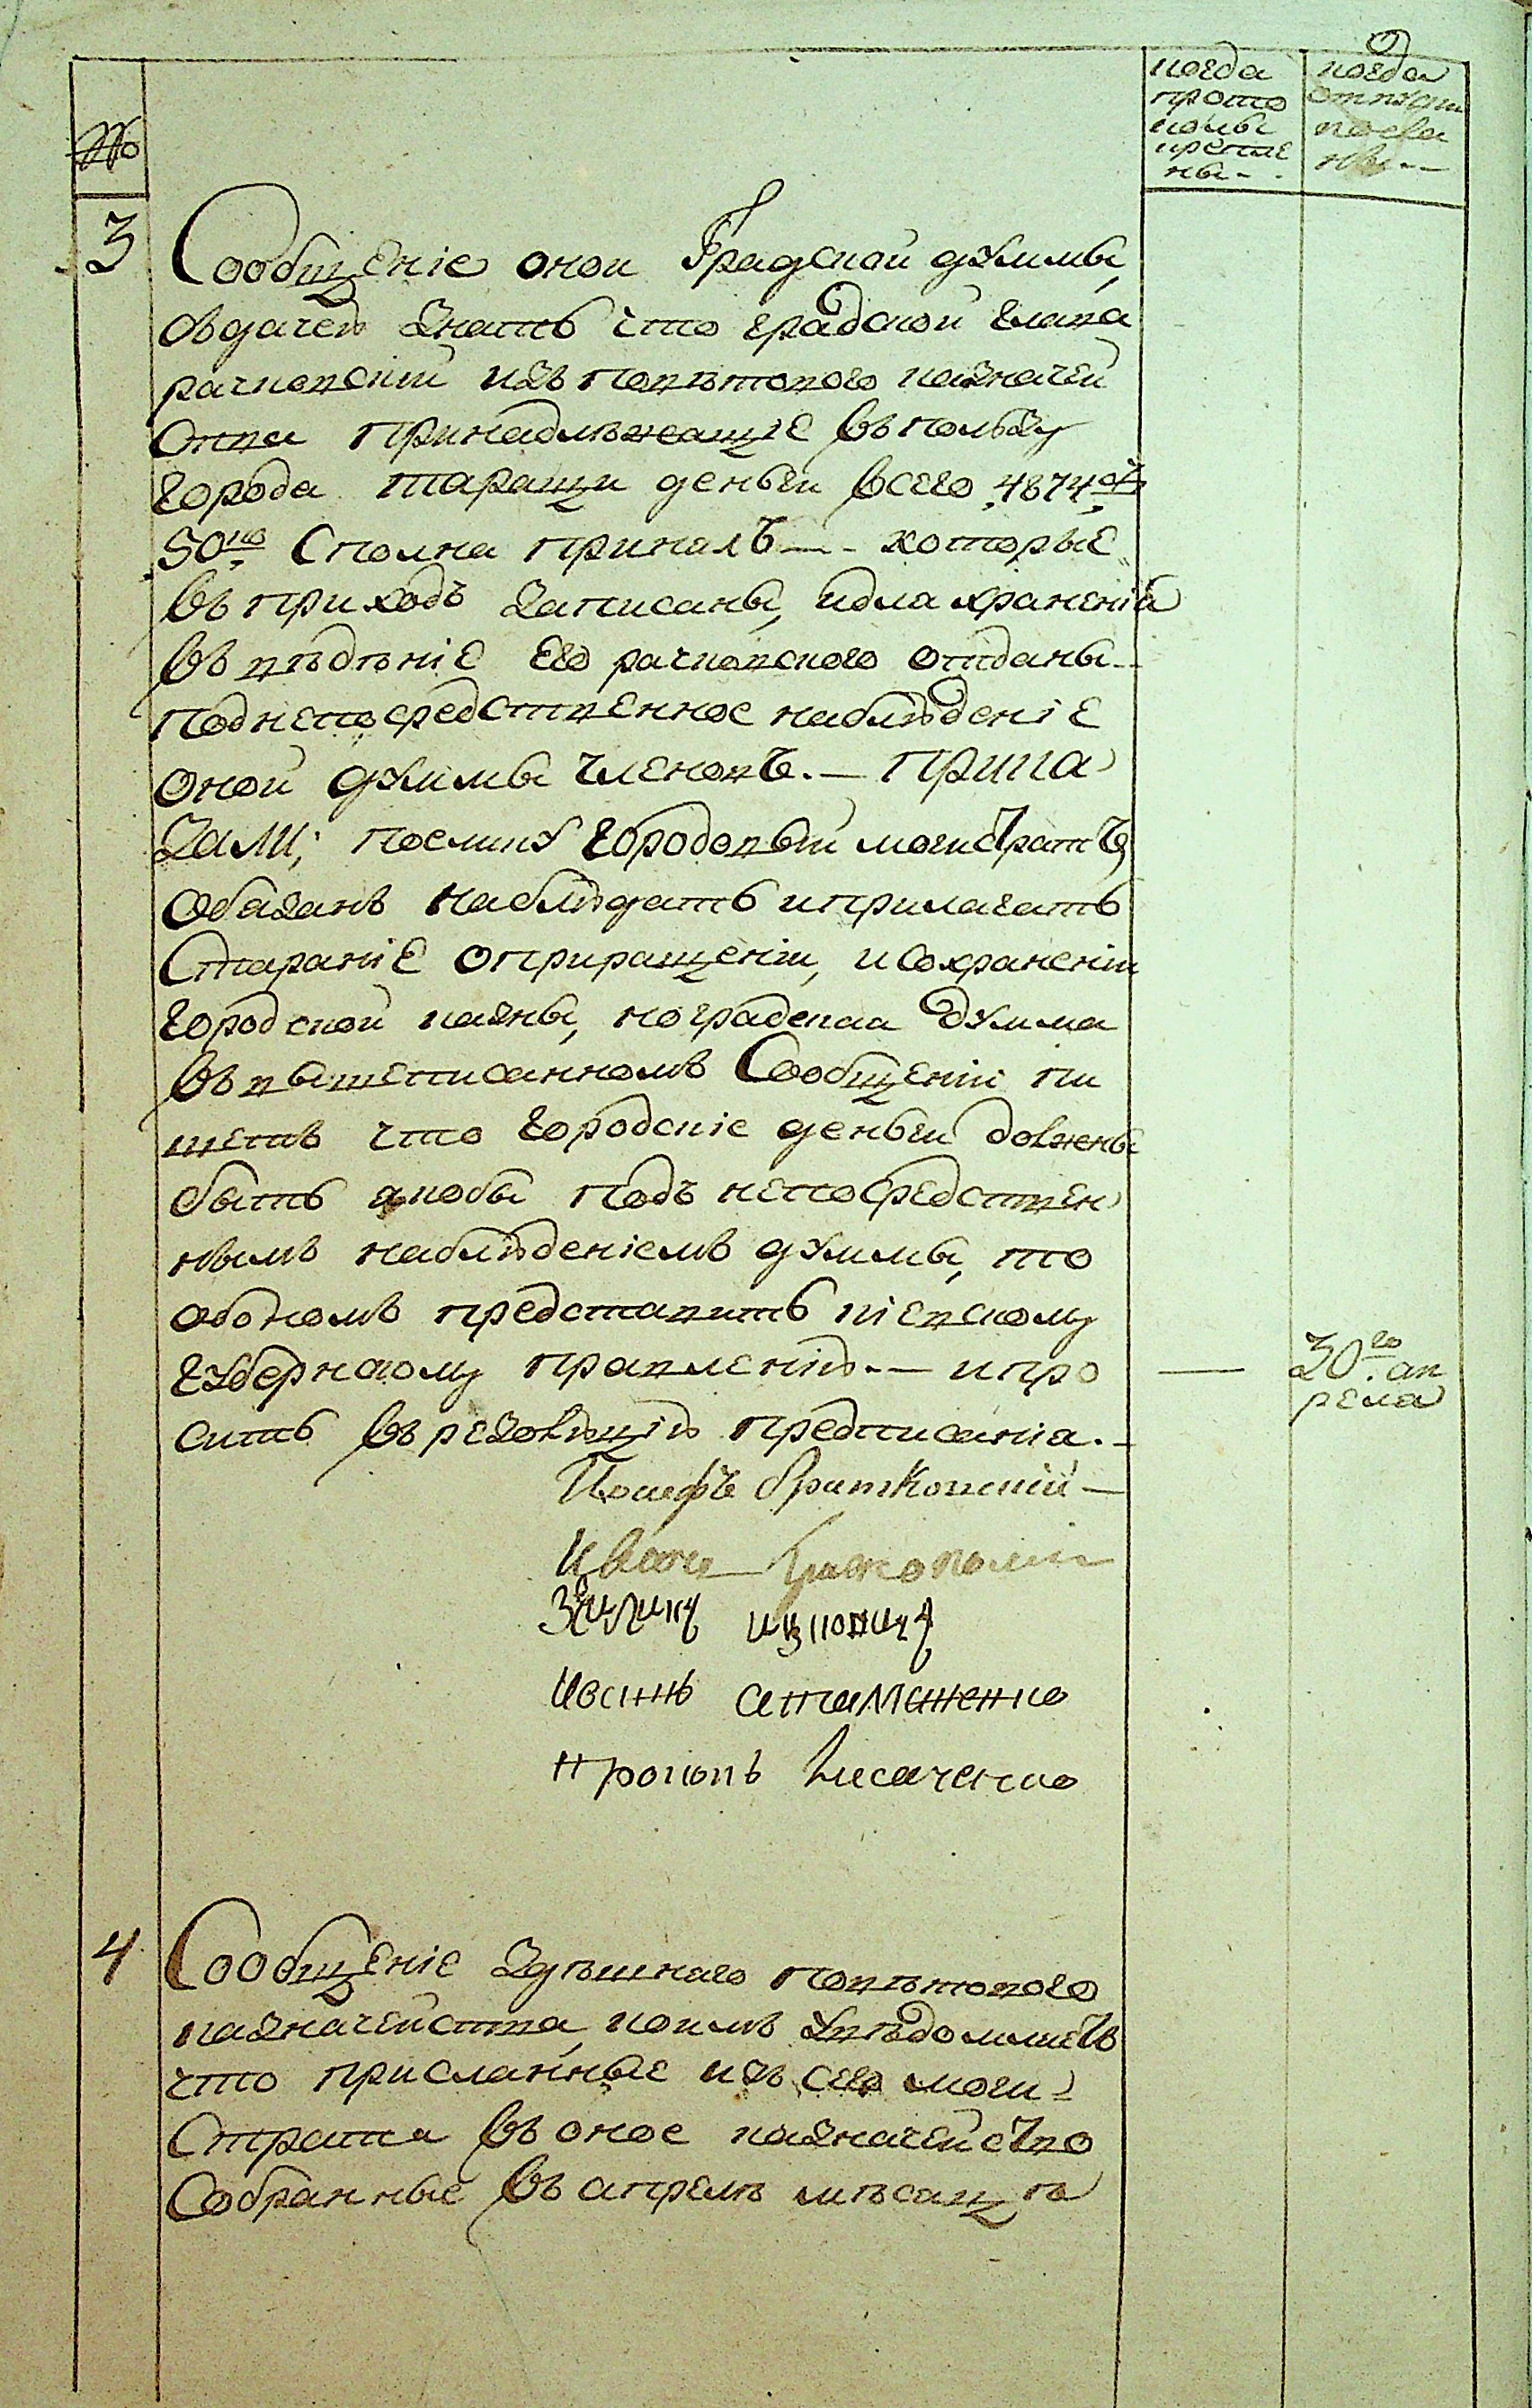 когда
прото
колы
крепле
ны - -
когда
отпуски
посла
ны - -
№
3
Сообщеніе оной Градской думмы,
овдачею знать что градской глава
рачковскій изъ поветового казначей
ства принадлежащіе въ ползу
города таращи деньги всего 4874 р
50 ко Сполна принялъ - - которые
въ приходъ записаны, идля храненія
въ веденіе его рачковского отданы -
под непосредственное наблюденіе
оной думмы членовъ. - Прика
зали; поелику городовый магистратъ
обязанъ наблюдать иприлагать
Стараніе оприращеніи, и сохраненіи
городской казны, но градская дума
въ вышеписанномъ Сообщеніи пи
шетъ что городскіе деньги должны
быть якобы подъ непосредствен
нымъ наблюденіемъ думмы, то
обономъ представить кіевскому
губернскому правленію. - ипро
сить въ резолюцію предписанія. -
— 30 го ап
реля
Иосифъ
Иванъ
Иванъ Атаманенко
Прокопъ Лисаченко
4
Сообщеніе здешнего поветового
казначейства, коимъ уведомляетъ
что присланные изъ сего маги-
Страта въ оное казначейство
Собранные въ апреле месяце